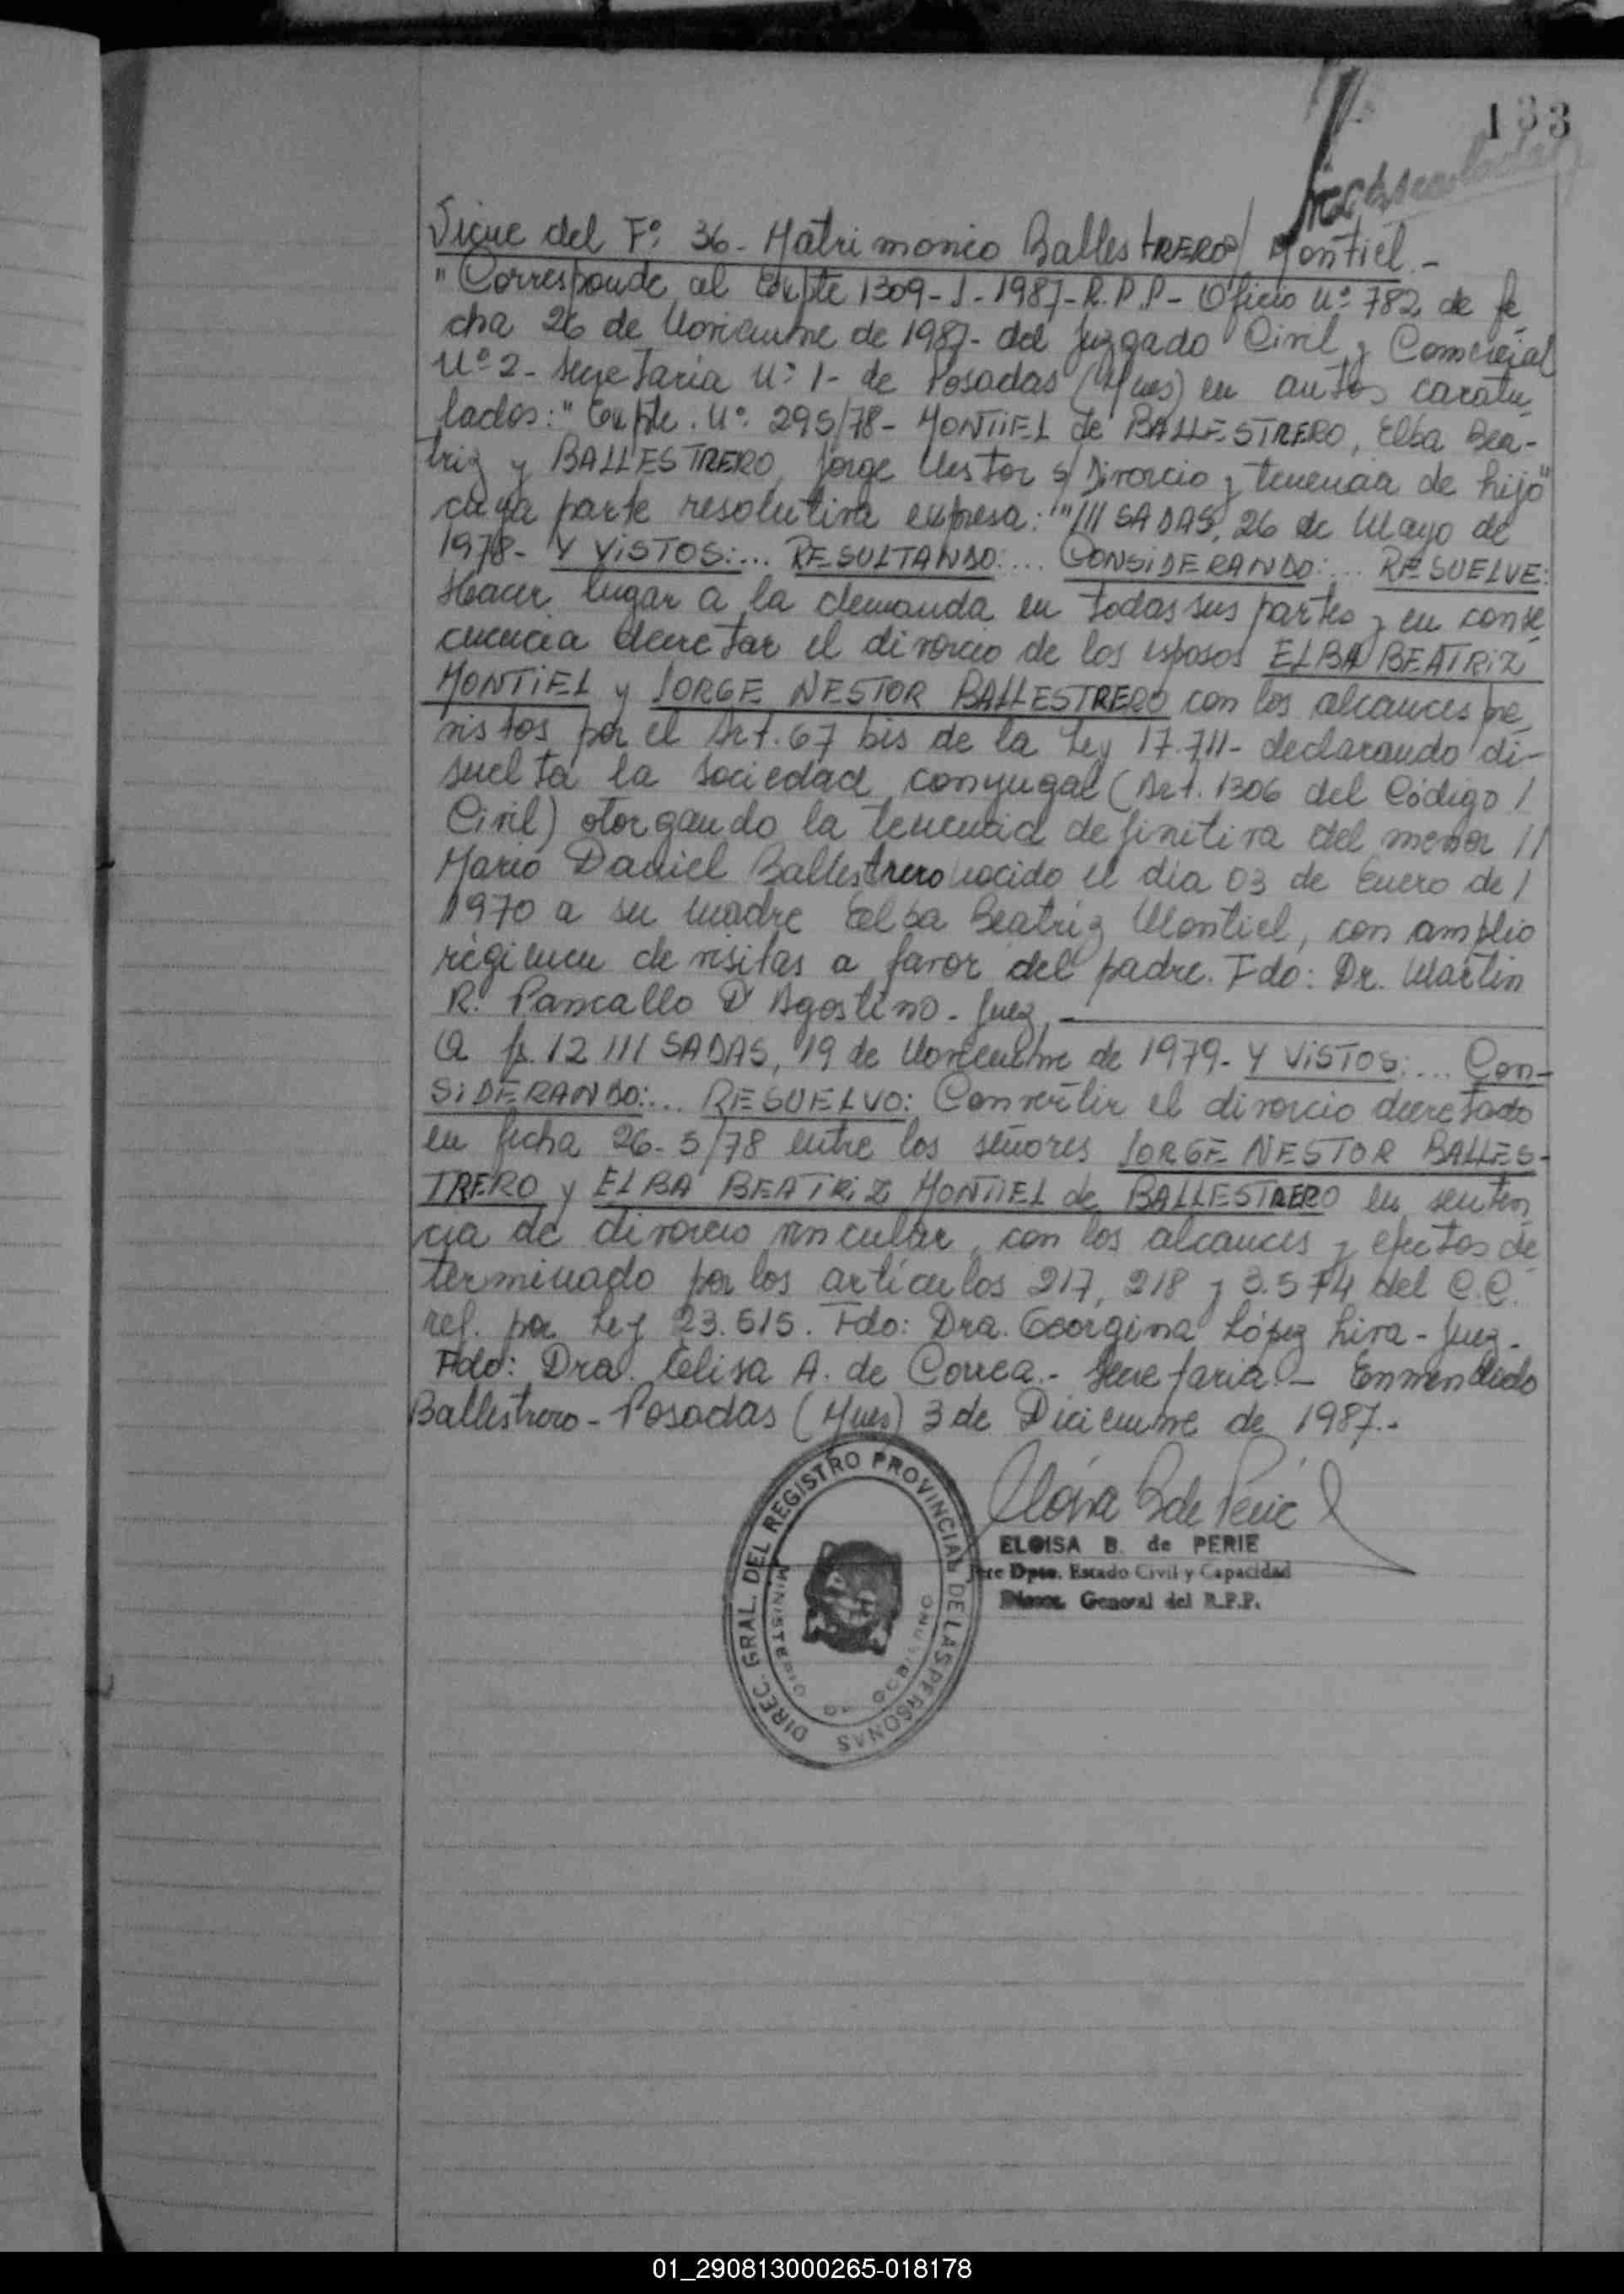 133
Sigue del Fº 36- Matrimonio BallesTRERO/ Montiel.-
"Corresponde al Expte 1309-J-1987-R.P.P- Oficio Nº 782 de fe
cha 26 de Noviembre de 1987- del Juzgado Civil y Comercial
Nº 2- Secretaria Nº 1- de Posadas (Mnes) en autos caratu
lados: "Expte. Nº 295/78- MONTIEL de BALLESTRERO, Elba Bea-
triz y BALLESTRERO, Jorge Nestor s/ Divorcio y tenencia de hijo"
cuya parte resolutiva expresa: "///SADAS, 26 de Mayo de
1978- Y VISTOS:... RESULTANDO:... CONSIDERANDO:... RESUELVE:
Hacer lugar a la demanda en todas sus partes y en conse
cuencia decretar el divorcio de los esposos ELBA BEATRIZ
MONTIEL y JORGE NESTOR BALLESTRERO con los alcances pre
vistos por el Art. 67 bis de la Ley 17.711- declarando di-
suelta la sociedad conyugal (Art. 1306 del Código /
Civil) otorgando la tenencia definitiva del menor //
Mario Daniel Ballestrero nacido el dia 03 de Enero de /
1970 a su madre Elba Beatriz Montiel, con amplio
régimen de visitas a favor del padre. Fdo: Dr. Martin
R. Pancallo D'Agostino- Juez,
A fs. 12 ///SADAS, 19 de Noviembre de 1979- Y VISTOS:... CON-
SIDERANDO:... RESUELVO: Convertir el divorcio decretado
en fecha 26-5/78 entre los señores JORGE NESTOR BALLES-
TRERO y ELBA BEATRIZ MONTIEL de BALLESTRERO en senten
cia de divorcio vincular, con los alcances y efectos de
terminado por los artículos 217, 218 y 3.574 del C.C.
ref. por Ley 23.515. Fdo: Dra. Georgina López Lira- Juez-
Fdo: Dra. Elisa A. de Correa.- Secretaria.- Enmendado
Ballestrero- Posadas (Mnes) 3 de Diciembre de 1987.-
DIREC. GRAL. DEL REGISTRO PROVINCIAL DE LAS PERSONAS
MINISTERIO DE GOBIERNO
ELOISA B. de PERIE
Dpto. Estado Civil y Capacidad
General del R.P.P.
01_290813000265-018178